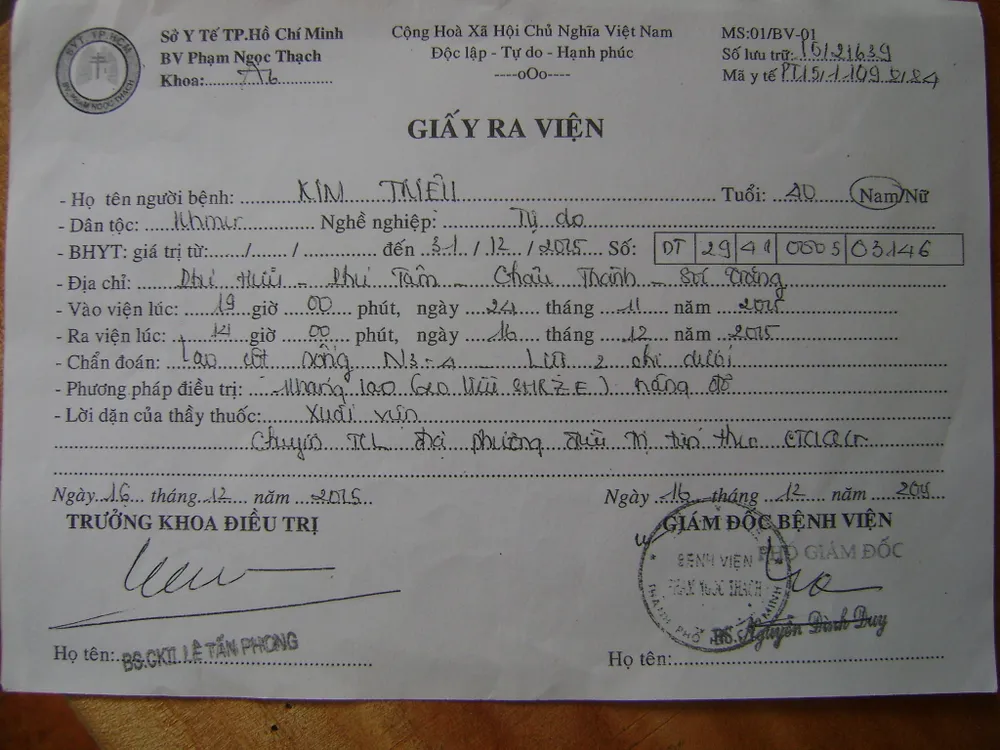 Sở Y Tế TP.Hồ Chí Minh
BV Phạm Ngọc Thạch
Khoa: A6
Cộng Hoà Xã Hội Chủ Nghĩa Việt Nam
Độc lập - Tự do - Hạnh phúc
----oOo----
MS:01/BV-01
Số lưu trữ: 15/21639
Mã y tế
GIẤY RA VIỆN
- Họ tên người bệnh: KIM THIÊU Tuổi: 40 Nam/Nữ
- Dân tộc: Khmer Nghề nghiệp: Tự do
- BHYT: giá trị từ:....../....../...... đến 31 / 12 / 2015 Số: DT 29 41 0005 03146
- Địa chỉ: Phú Hữu - Phú Tâm - Châu Thành - Sóc Trăng
- Vào viện lúc: 19 giờ 00 phút, ngày 24 tháng 11 năm 2015
- Ra viện lúc: 14 giờ 00 phút, ngày 16 tháng 12 năm 2015
- Chẩn đoán: Lao cột sống N3-4 - Liệt 2 chi dưới
- Phương pháp điều trị: Kháng lao SHRZE
- Lời dặn của thầy thuốc: Xuất viện
Chuyển địa phương điều trị tiếp theo
Ngày 16 tháng 12 năm 2015
TRƯỞNG KHOA ĐIỀU TRỊ
Họ tên: BS.CKII. LÊ TẤN PHONG
Ngày 16 tháng 12 năm 2015
GIÁM ĐỐC BỆNH VIỆN
PHÓ GIÁM ĐỐC
BỆNH VIỆN
PHẠM NGỌC THẠCH
THÀNH PHỐ HỒ CHÍ MINH
BS. Nguyễn Đình Duy
Họ tên: